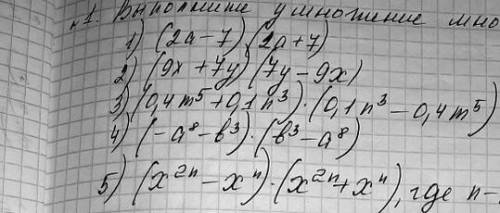 1. Выполните умножение мно
1) (2a-7)(2a+7)
2) (9x+7y)(7y-9x)
3) (0,4m⁵+0,1n³)·(0,1n³-0,4m⁵)
4) (-a⁸-b³)·(b³-a⁸)
5) (x²ⁿ-xⁿ)·(x²ⁿ+xⁿ), где n-